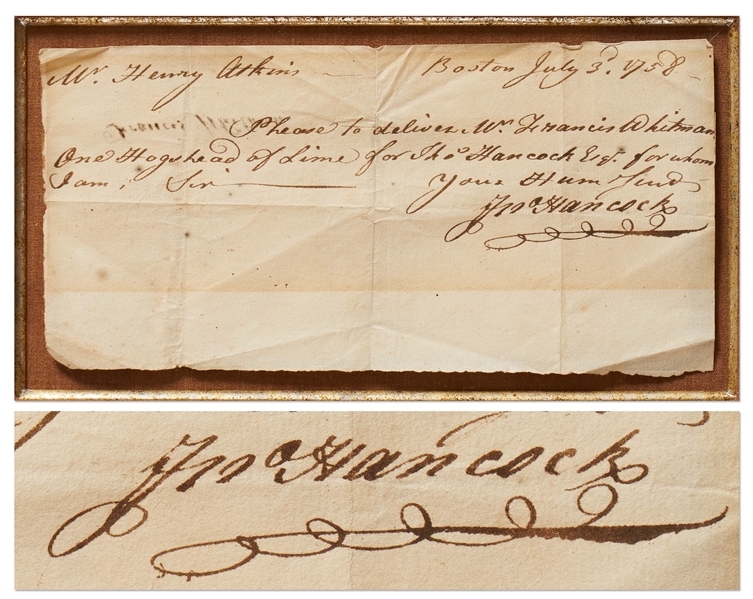 Mr. Henry Atkins Boston July 3d. 1758
Please to deliver Mr. Francis Whitman
One Hogshead of Lime for Thos Hancock Esqr. for whom
I am, Sir
Your Hum Servt
Jno Hancock
Jno Hancock